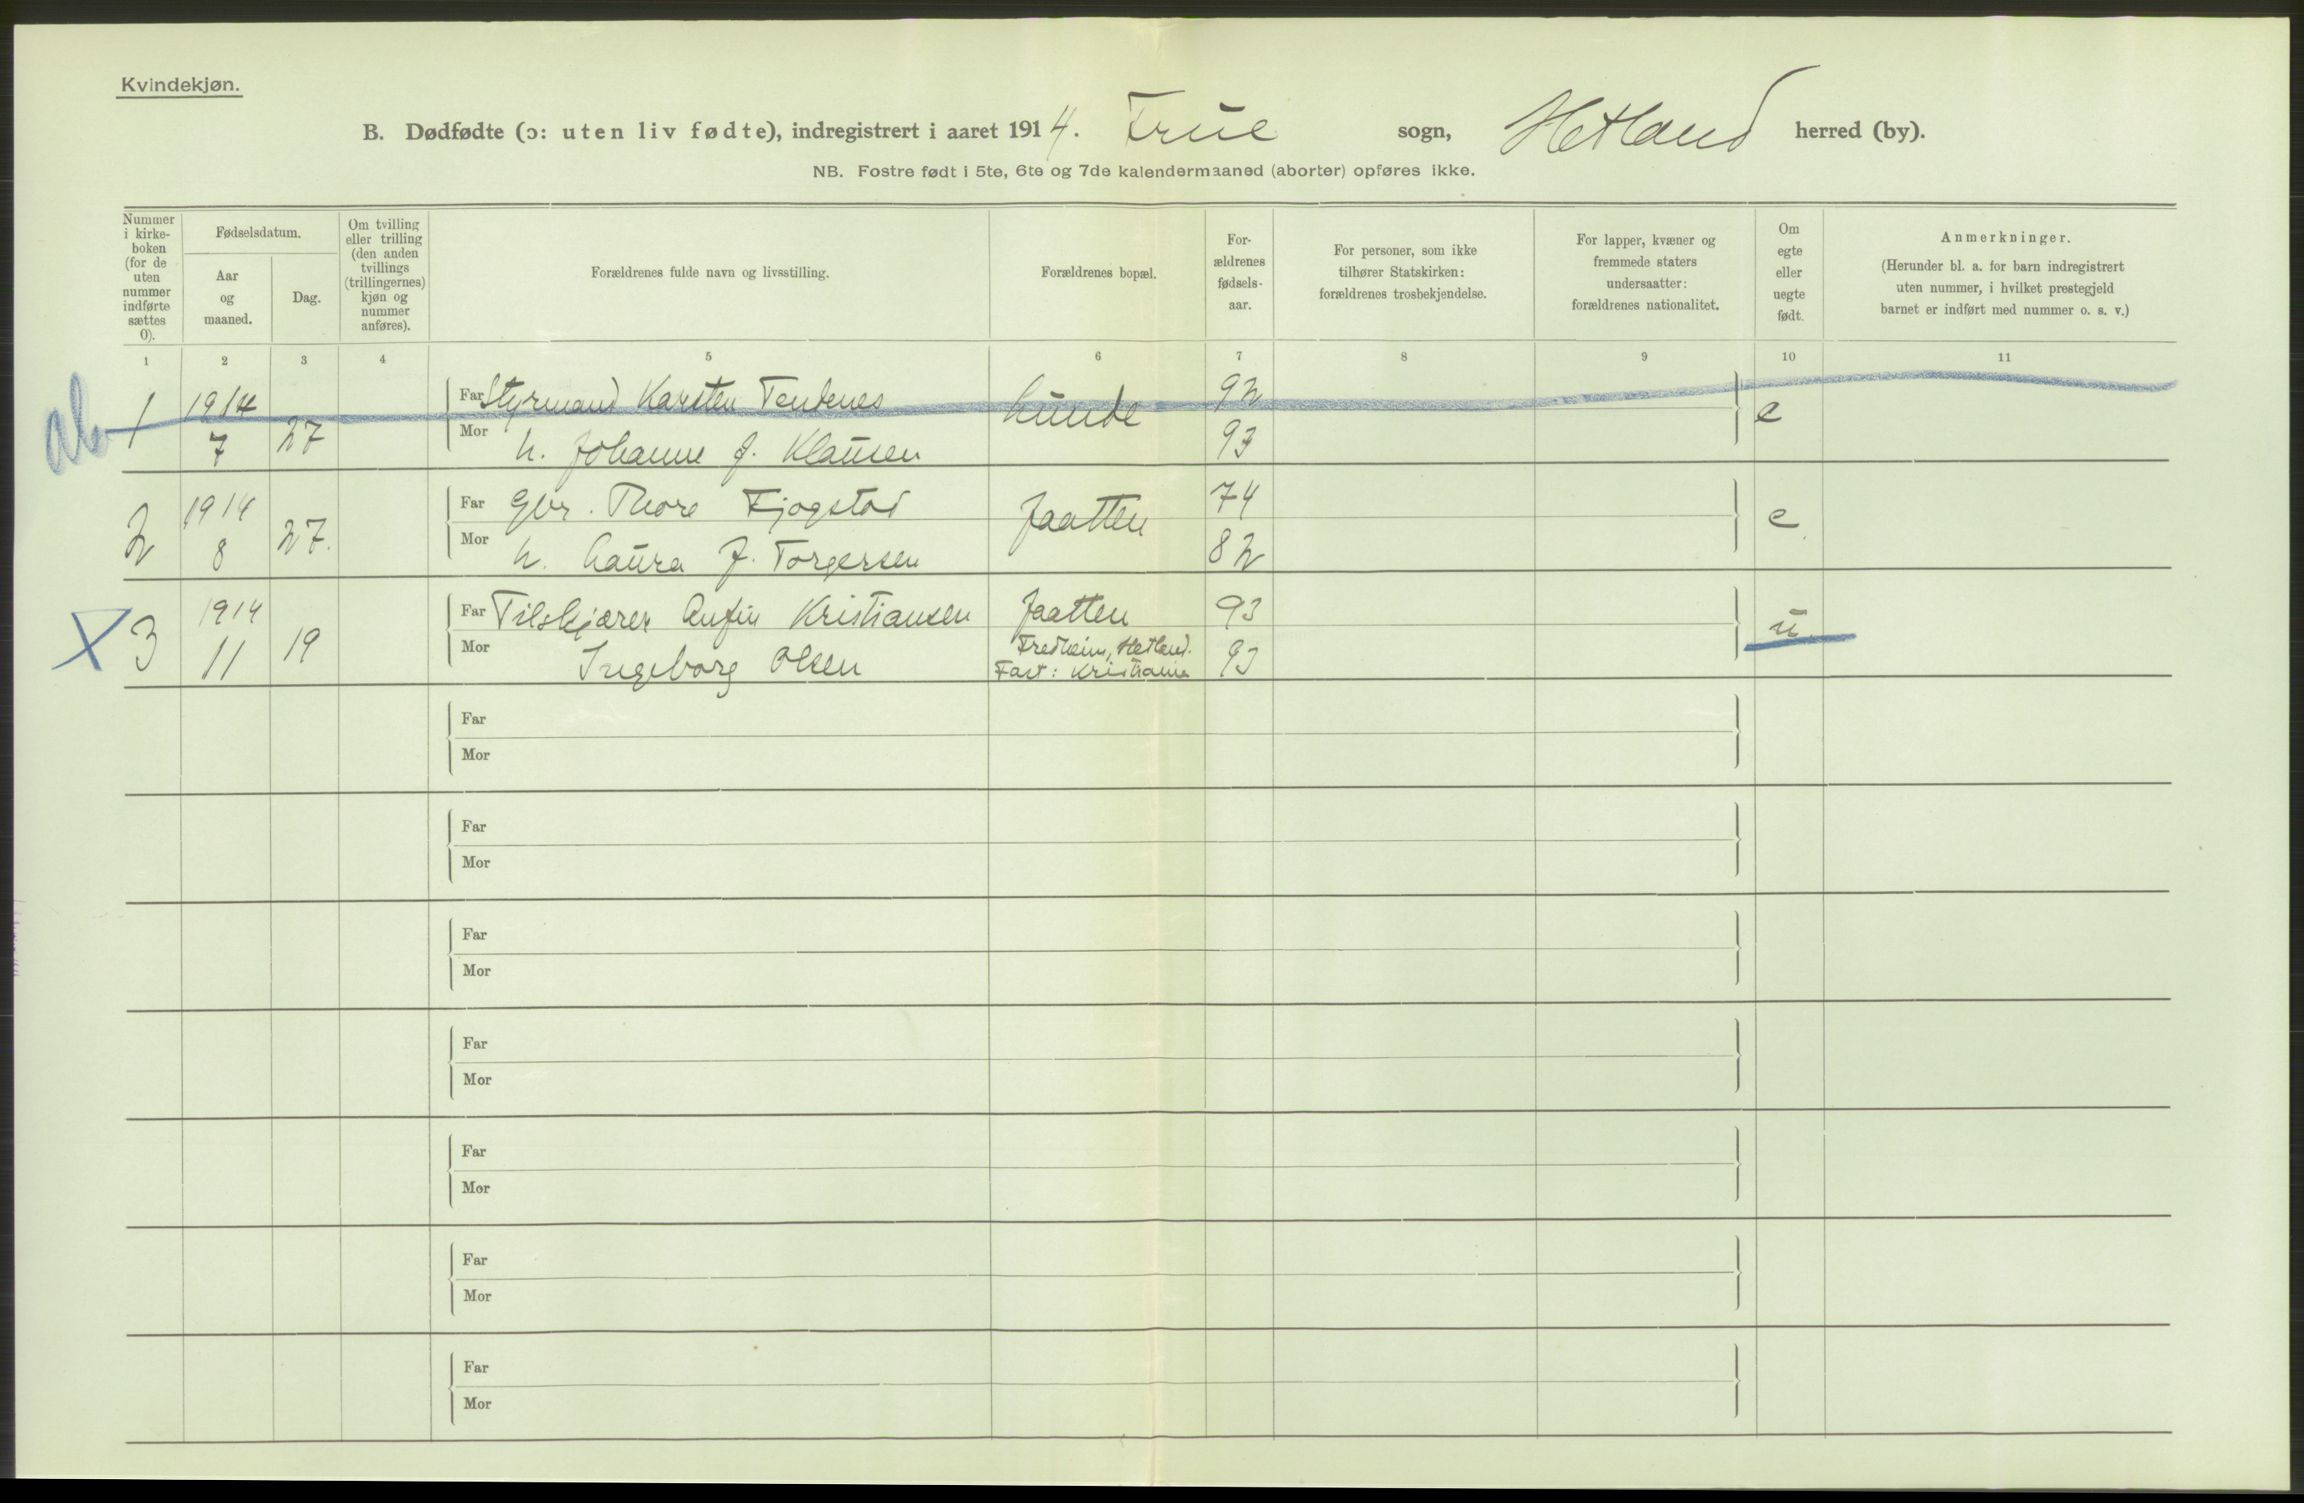 Kvindekjøn.
B. Dødfødte (ɔ: uten liv fødte), indregistrert i aaret 1914. Frue sogn, Hetland herred (by).
NB. Fostre født i 5te, 6te og 7de kalendermaaned (aborter) opføres ikke.
Nummer
i kirke-
boken
(for de
uten
nummer
indførte
sættes
0).
Fødselsdatum.
Aar
og
maaned.
Dag.
Om tvilling
eller trilling
(den anden
tvillings
(trillingernes)
kjøn og
nummer
anføres).
Forældrenes fulde navn og livsstilling.
Forældrenes bopæl.
For-
ældrenes
fødsels-
aar.
For personer, som ikke
tilhører Statskirken:
forældrenes trosbekjendelse.
For lapper, kvæner og
fremmede staters
undersaatter:
forældrenes nationalitet.
Om
egte
eller
uegte
født.
Anmerkninger.
(Herunder bl. a. for barn indregistrert
uten nummer, i hvilket prestegjeld
barnet er indført med nummer o. s. v.)
1 2 3 4 5 6 7 8 9 10 11
1 1914 7 27 Far Styrmand Karsten Tendenes Lunde 92 e
Mor h. Johanne J. Klausen 93
2 1914 8 27. Far Gbr. Thore Fjogstad Jaatten 74 e
Mor h. Laura J. Torgersen 82
X 3 1914 11 19 Far Tilskjærer Anfin Kristiansen Jaatten 93 u
Mor Ingeborg Olsen Fredheim, Hetland. 93
Fast: Kristiania
Far
Mor
Far
Mor
Far
Mor
Far
Mor
Far
Mor
Far
Mor
Far
Mor